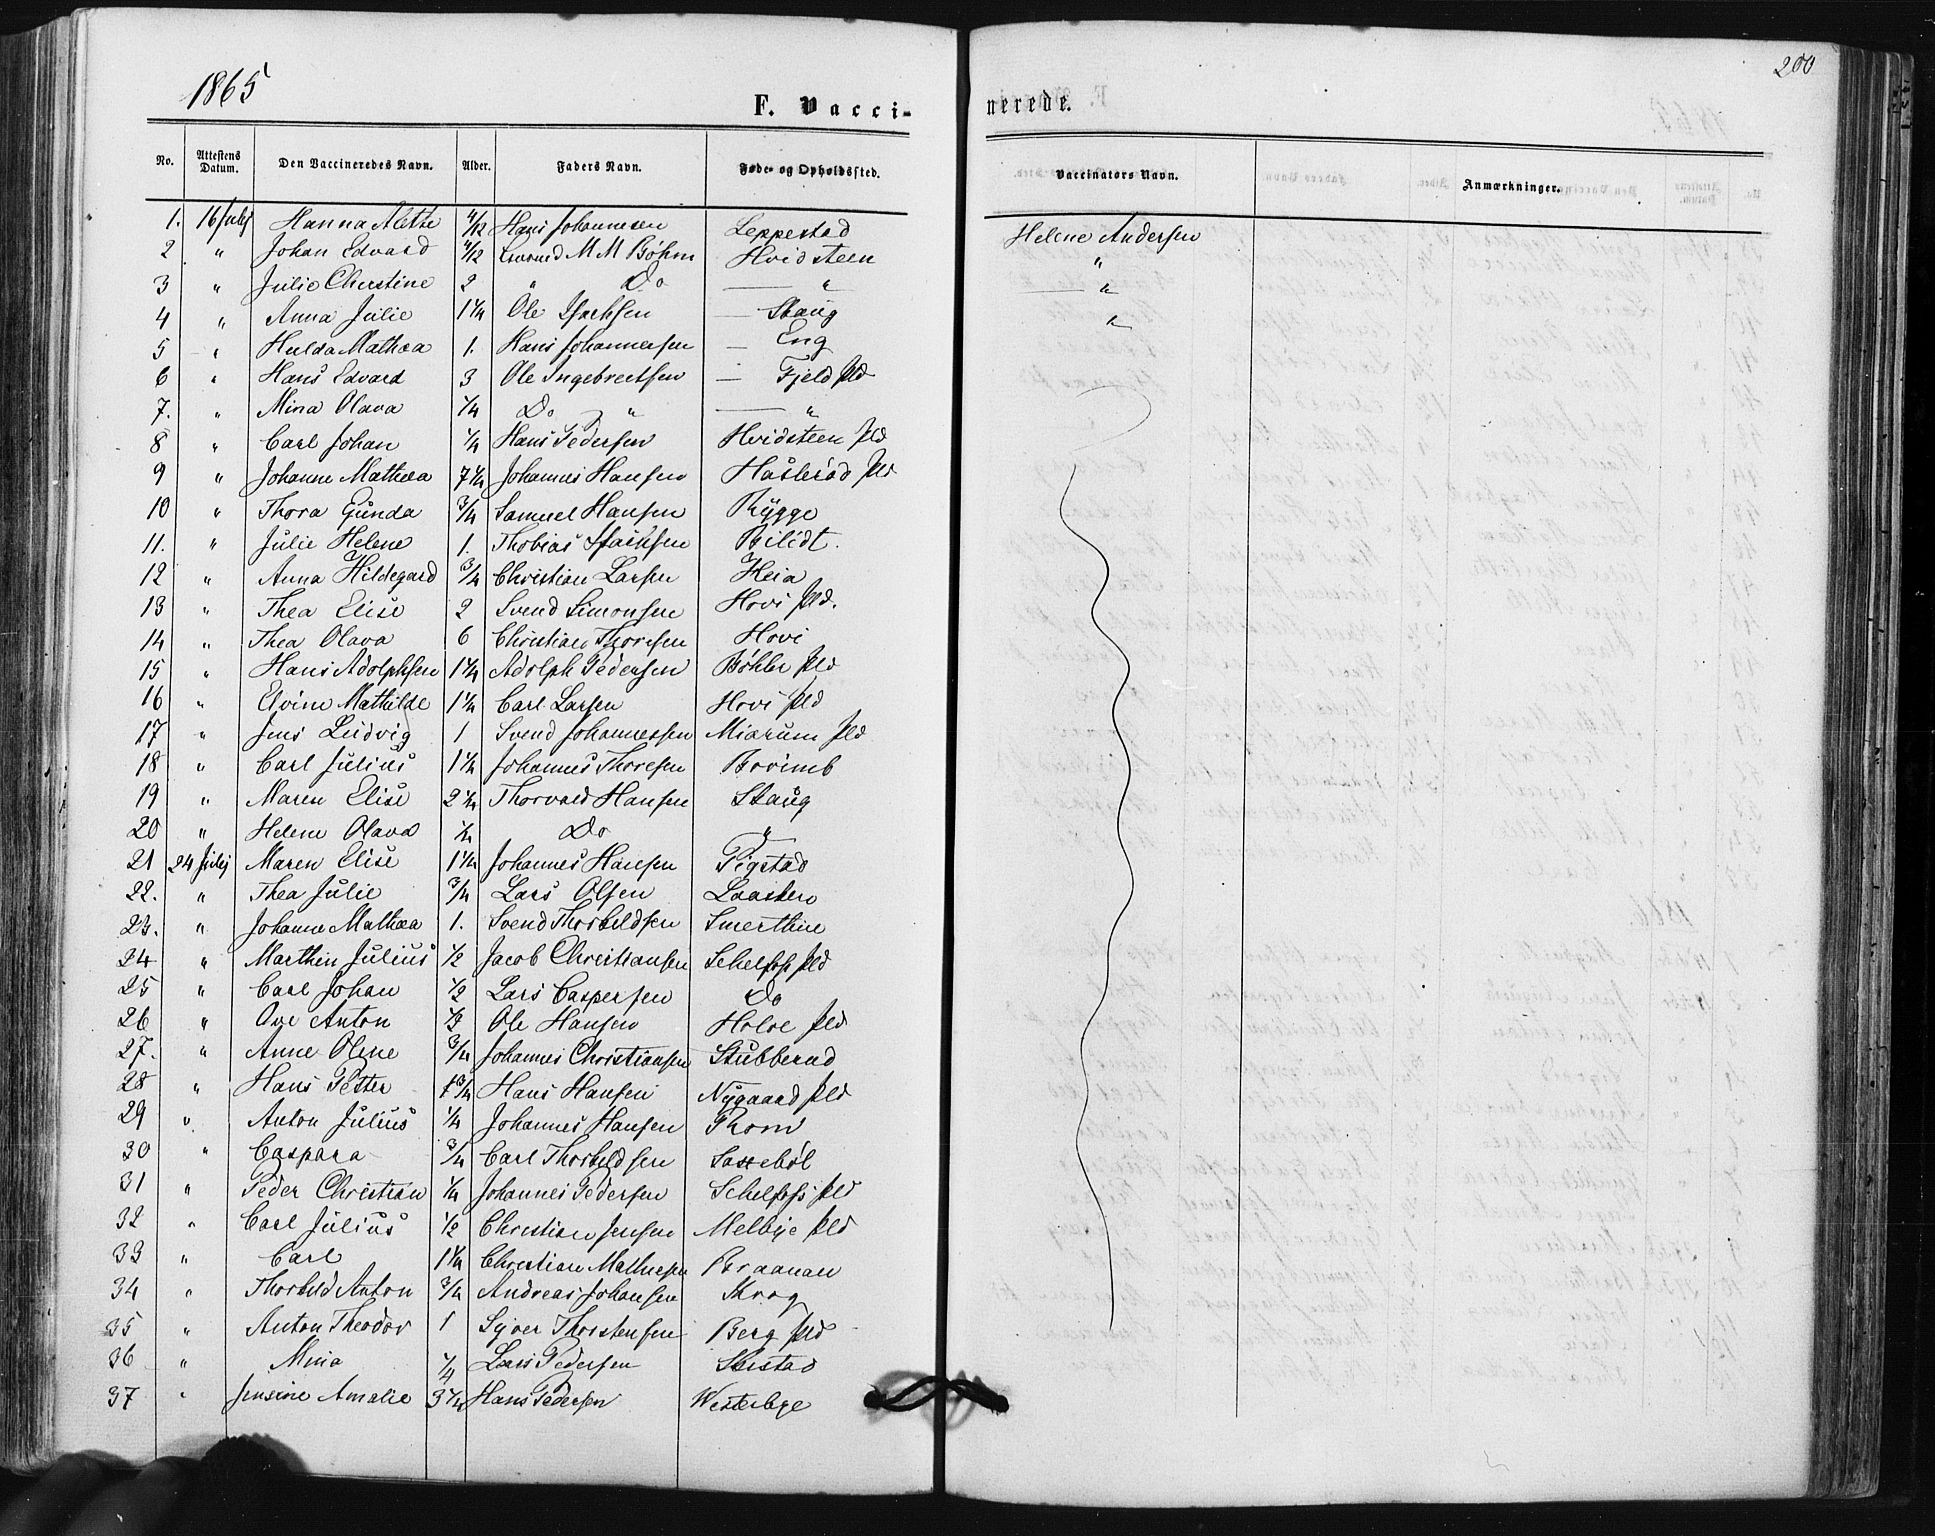 1865
200
F. Vacci-
nerede.
No. Attestens Datum. Den Vaccineredes Navn. Alder. Faders Navn. Føde- og Opholdssted. Vaccinators Navn. Anmærkninger.
1. 16 Julij Hanna Alette 4/12 Hans Johannesen Leppestad Helene Andersen
2 " Johan Edvard 4/12 M M Bøhm Hvidsteen "
3 " Julie Christine 2 " Do — " — "
4 " Anna Julie 1 1/4 Ole Isachsen — Skaug "
5 — " Hulda Mathea 1. Hans Johannesen — Eng
6 " Hans Edvard 3 Ole Ingebrectsen — Fjeld Pld
7. " Mina Olava 1/4 Do " — "
8 " Carl Johan 1/4 Hans Pedersen Hvidsteen Pld
9 " Johanne Mathea 7 1/4 Johannes Hansen Haslerød Pld
10 " Thora Gunda 3/4 Samuel Hansen Rygge
11. " Julie Helene 1. Thobias Isachsen Bilidt.
12 " Anna Hildegard 3/4 Christian Larsen Heia
13 " Thea Elise 2 Svend Simonsen Hovi Pld.
14 " Thea Olava 6 Christian Thoresen Hovi
15 " Hans Adolphsen 1 1/4 Adolph Pedersen Bøhler Pld
16 " Elvine Mathilde 1 1/4 Carl Larsen Hovi Pld
17 " Jens Ludvig 1 Svend Johannessen Miarum Pld
18 " Carl Julius 1 1/4 Johannes Thoresen
19 " Maren Elise 2 1/4 Thorvald Hansen Skaug
20 " Helene Olava 1/4 Do "
21 24 Julij Maren Elise 1 1/4 Johannes Hansen Pigstad
22. " Thea Julie 3/4 Lars Olsen Laasken
23. " Johanne Mathea 1. Svend Thorkildsen
24 " Marthin Julius 1/2 Jacob Christiansen Schelfos Pld
25 " Carl Johan 1/2 Lars Caspersen Do
26 " Ove Anton 1/2 Ole Hansen Holoe Pld
27. " Anne Olene 3/4 Johannes Christiansen Stubberud
28 " Hans Petter 1 3/4 Hans Hansen Nygaard Pld
29 " Anton Julius 1/4 Johannes Hansen Rom
30 " Caspara 3/4 Carl Thorkildsen Sassebøl
31 " Peder Christian 1/4 Johannes Pedersen Schelfos Pld
32 " Carl Julius 1/2 Christian Jensen Melbye Pld
33 " Carl 1 1/4 Christian Mathiesen Braanan
34 " Thorkild Anton 3/4 Andreas Johansen Krog
35 " Anton Theodor 1 Syver Thorstensen Berg Pld
36 " Mina 1/4 Lars Pedersen
37 " Jensine Amalie 3 1/4 Hans Pedersen Westerbye